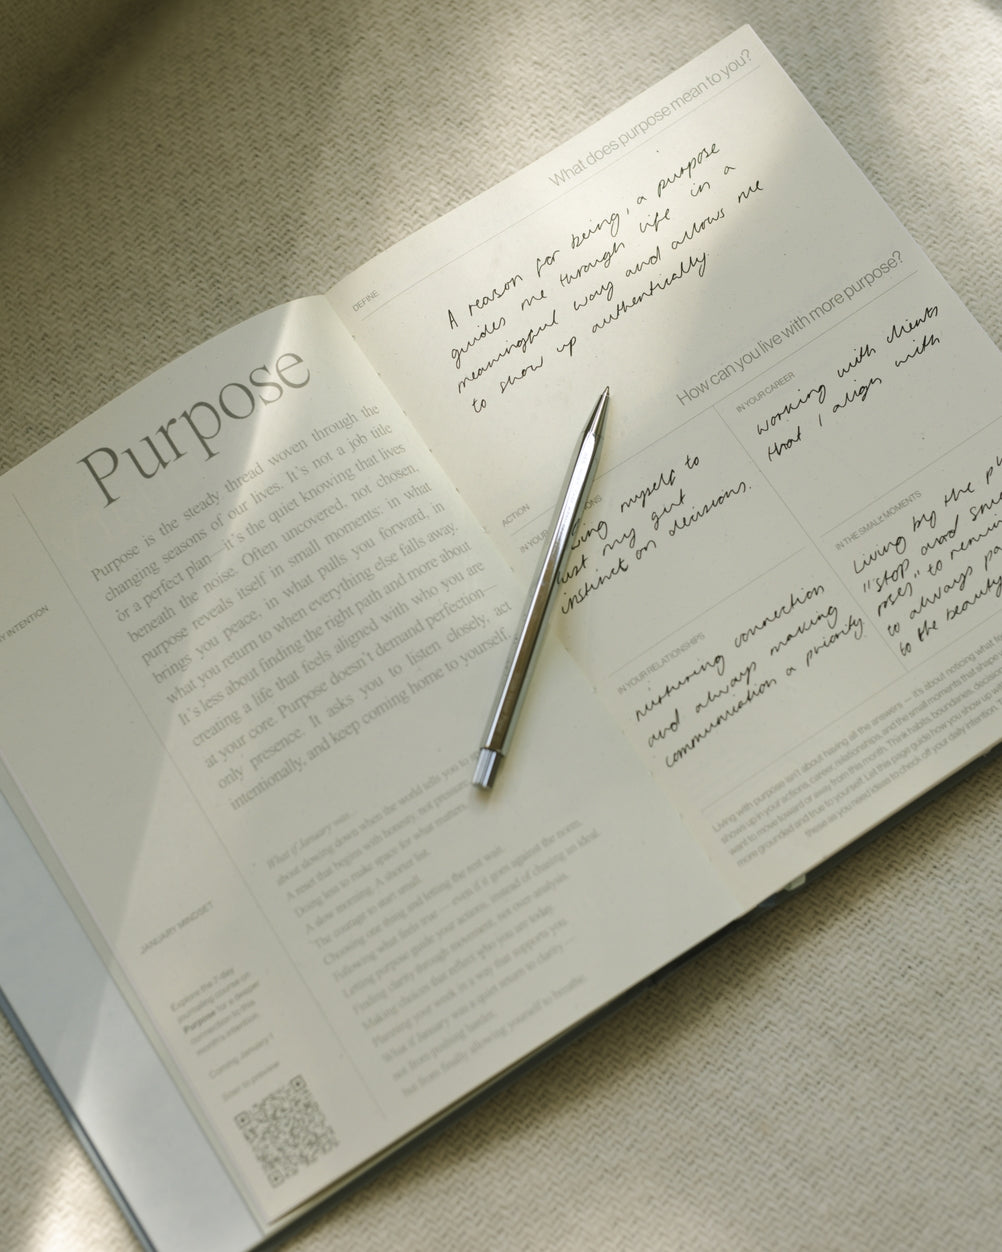 Purpose
Purpose is the steady thread woven through the
changing seasons of our lives. It's not a job title
or a perfect plan—it's the quiet knowing that lives
beneath the noise. Often uncovered, not chosen,
purpose reveals itself in small moments: in what
brings you peace, in what pulls you forward, in
what you return to when everything else falls away.
It's less about finding the right path and more about
creating a life that feels aligned with who you are
at your core. Purpose doesn't demand perfection—
only presence. It asks you to listen closely, act
intentionally, and keep coming home to yourself.
INTENTION
What if January was...
about slowing down when the world tells you to
A reset that begins with honesty, not pressure
Doing less to make space for what matters
A slow morning. A shorter list.
The courage to start small.
Choosing one thing and letting the rest wait.
Following what feels true — even if it goes against the norm.
Letting purpose guide your actions, instead of chasing an ideal.
Finding clarity through movement, not over analysis.
Making choices that reflect who you are today.
Planning your week in a way that supports you.
What if January was a quiet return to clarity —
not from pushing harder,
but from finally allowing yourself to breathe.
JANUARY MINDSET
Explore the 7-day
journaling course on
Purpose for a deeper
connection to this
month's intention.
Coming January 1
Scan to preview
What does purpose mean to you?
DEFINE
A reason for being, a purpose
guides me through life in a
meaningful way and allows me
to show up authentically.
How can you live with more purpose?
ACTION
IN YOUR
myself to
my gut
instinct on decisions.
IN YOUR CAREER
working with clients
that I align with
IN YOUR RELATIONSHIPS
nurturing connection
and always making
communication a priority
IN THE SMALL MOMENTS
Living by the
"stop and
roses" to
to always
to the beauty
Living with purpose isn't about having all the answers — it's about noticing what
shows up in your actions, career, relationships and the small moments that shape
want to move toward or away from this month. Think habits, boundaries,
more grounded and true to yourself. Let this page guide how you show up
these as you need ideas to check off your daily intention